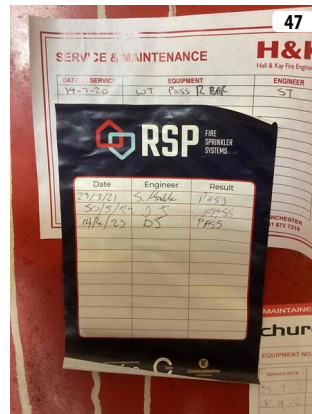 47
SERVICE & MAINTENANCE
H&K
Hall & Kay Fire Engine
DATE SERVICE EQUIPMENT ENGINEER
14-7-20 WT Pass 12 BAR ST
RSP FIRE
SPRINKLER
SYSTEMS
Date Engineer Result
23/3/21 Pass
PASS
14/4/23 DS PASS
MANCHESTER
MAINTAINE
chur
EQUIPMENT NO.
SERVICE DATE